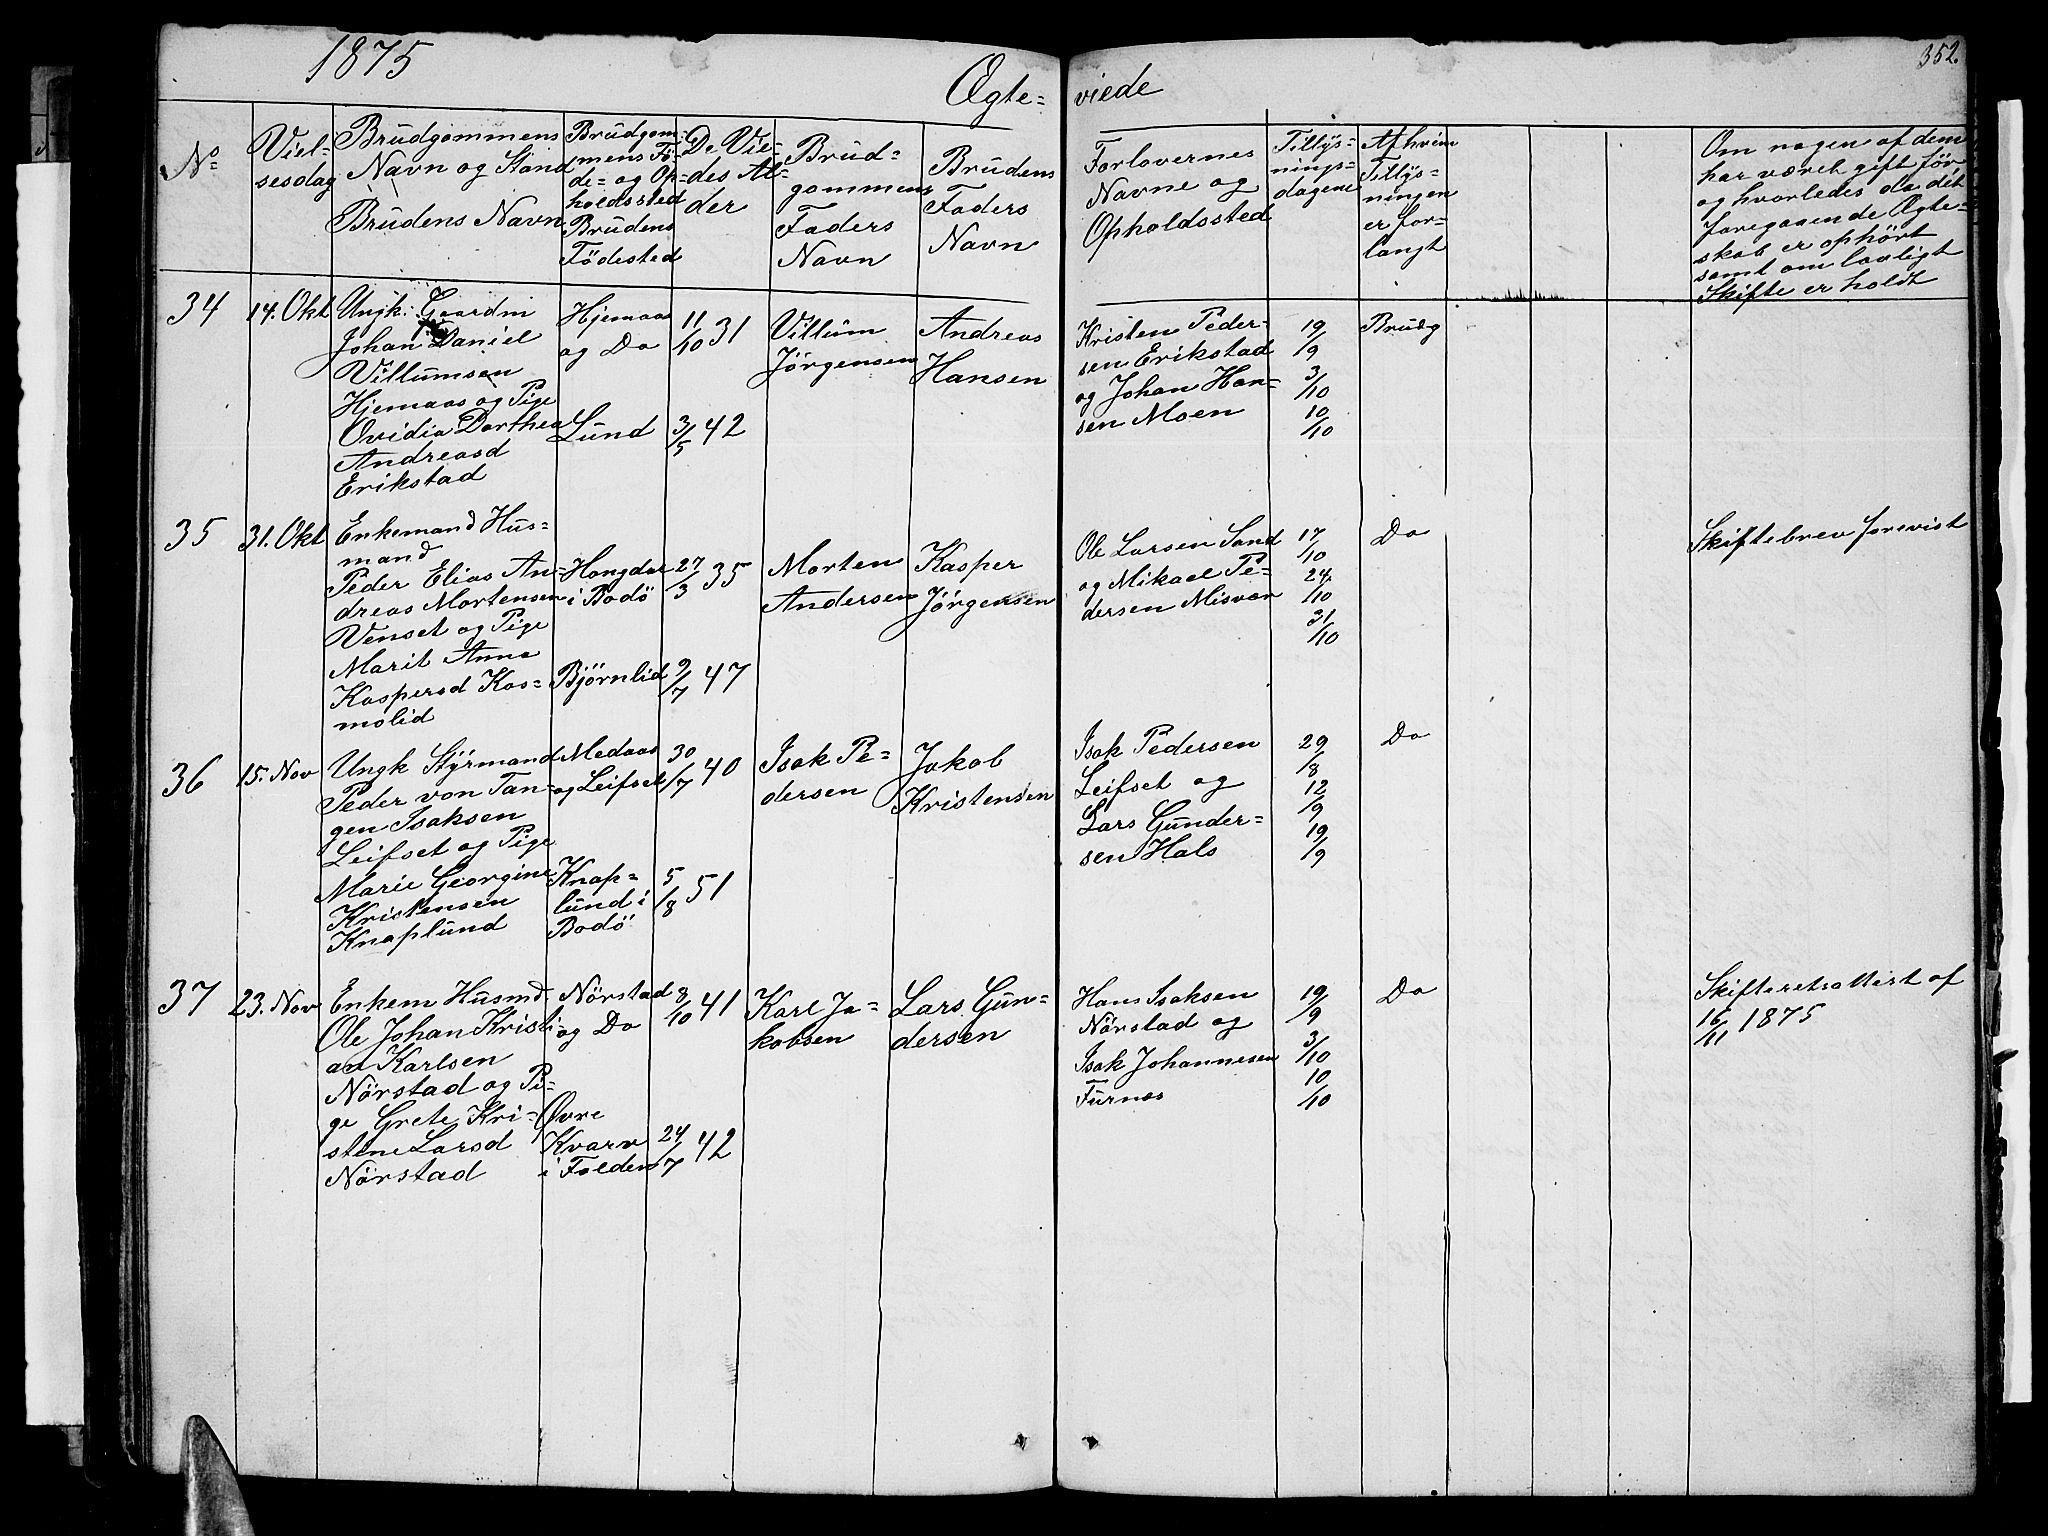 1875
352.
Ægte=
viede
No
Viel-
sesdag
Brudgommens
Navn og Stand
Brudens Navn
Brudgom-
mens Fö-
de= og Op-
holdssted
Brudens
Födested
De Vie-
des Al-
der
Brud=
gommens
Faders
Navn
Brudens
Faders
Navn
Forlovernes
Navne og
Opholdssted
Tillys-
nings-
dagene
Af hvem
Tillys-
ningen
er for-
langt
Om nogen af dem
har været gift för
og hvorledes da det
foregaaende Ægte=
skab er ophört
samt om lovligt
Skifte er holdt
34
14. Okt
Ungk: Gaardm
Johan Daniel
Villumsen
Hjemaas og Pige
Ovidia Dorthea
Andreasd
Erikstad
Hjemaas
og Do
Lund
11/10 31
3/5 42
Villum
Jörgensen
Andreas
Hansen
Kristen Peder-
sen Erikstad
og Johan Han-
sen Moen
19/9
3/10
10/10
Brudg
35
31. Okt
Enkemand Hus=
mand
Peder Elias An=
dreas Mortensen
Venset og Pige
Marit Anna
Kaspersd Kos=
molid
i Bodö
Björnlid
27/3 35
9/7 47
Morten
Andersen
Kasper
Jörgensen
Ole Larsen Sand
og Mikael Pe=
dersen Misvær
17/10
24/10
31/10
Do
Skiftebrev forevist
36
15. Nov
Ungk Styrmand
Peder von Tan-
gen Isaksen
Leifset og Pige
Marie Georgine
Kristensen
Knaplund
Medaas
og Leifset
Knap=
lund i
Bodö
30/7 40
5/8 51
Isak Pe=
dersen
Jakob
Kristensen
Isak Pedersen
Leifset og
Lars Gunder=
sen Hals
29/8
12/9
19/9
Do
37
23. Nov
Enkem Husmd
Ole Johan Kristi
an Karlsen
Nörstad og Pi=
ge Grete Kri=
stine Larsd
Nörstad
Nörstad
og Do
Övre
Kvarv
i Folden
8/10 41
24/7 42
Karl Ja=
kobsen
Lars Gun=
dersen
Hans Isaksen
Nörstad og
Isak Johannesen
Furnes
19/9
3/10
10/10
Do
Skifteretsattest af
16/11 1875